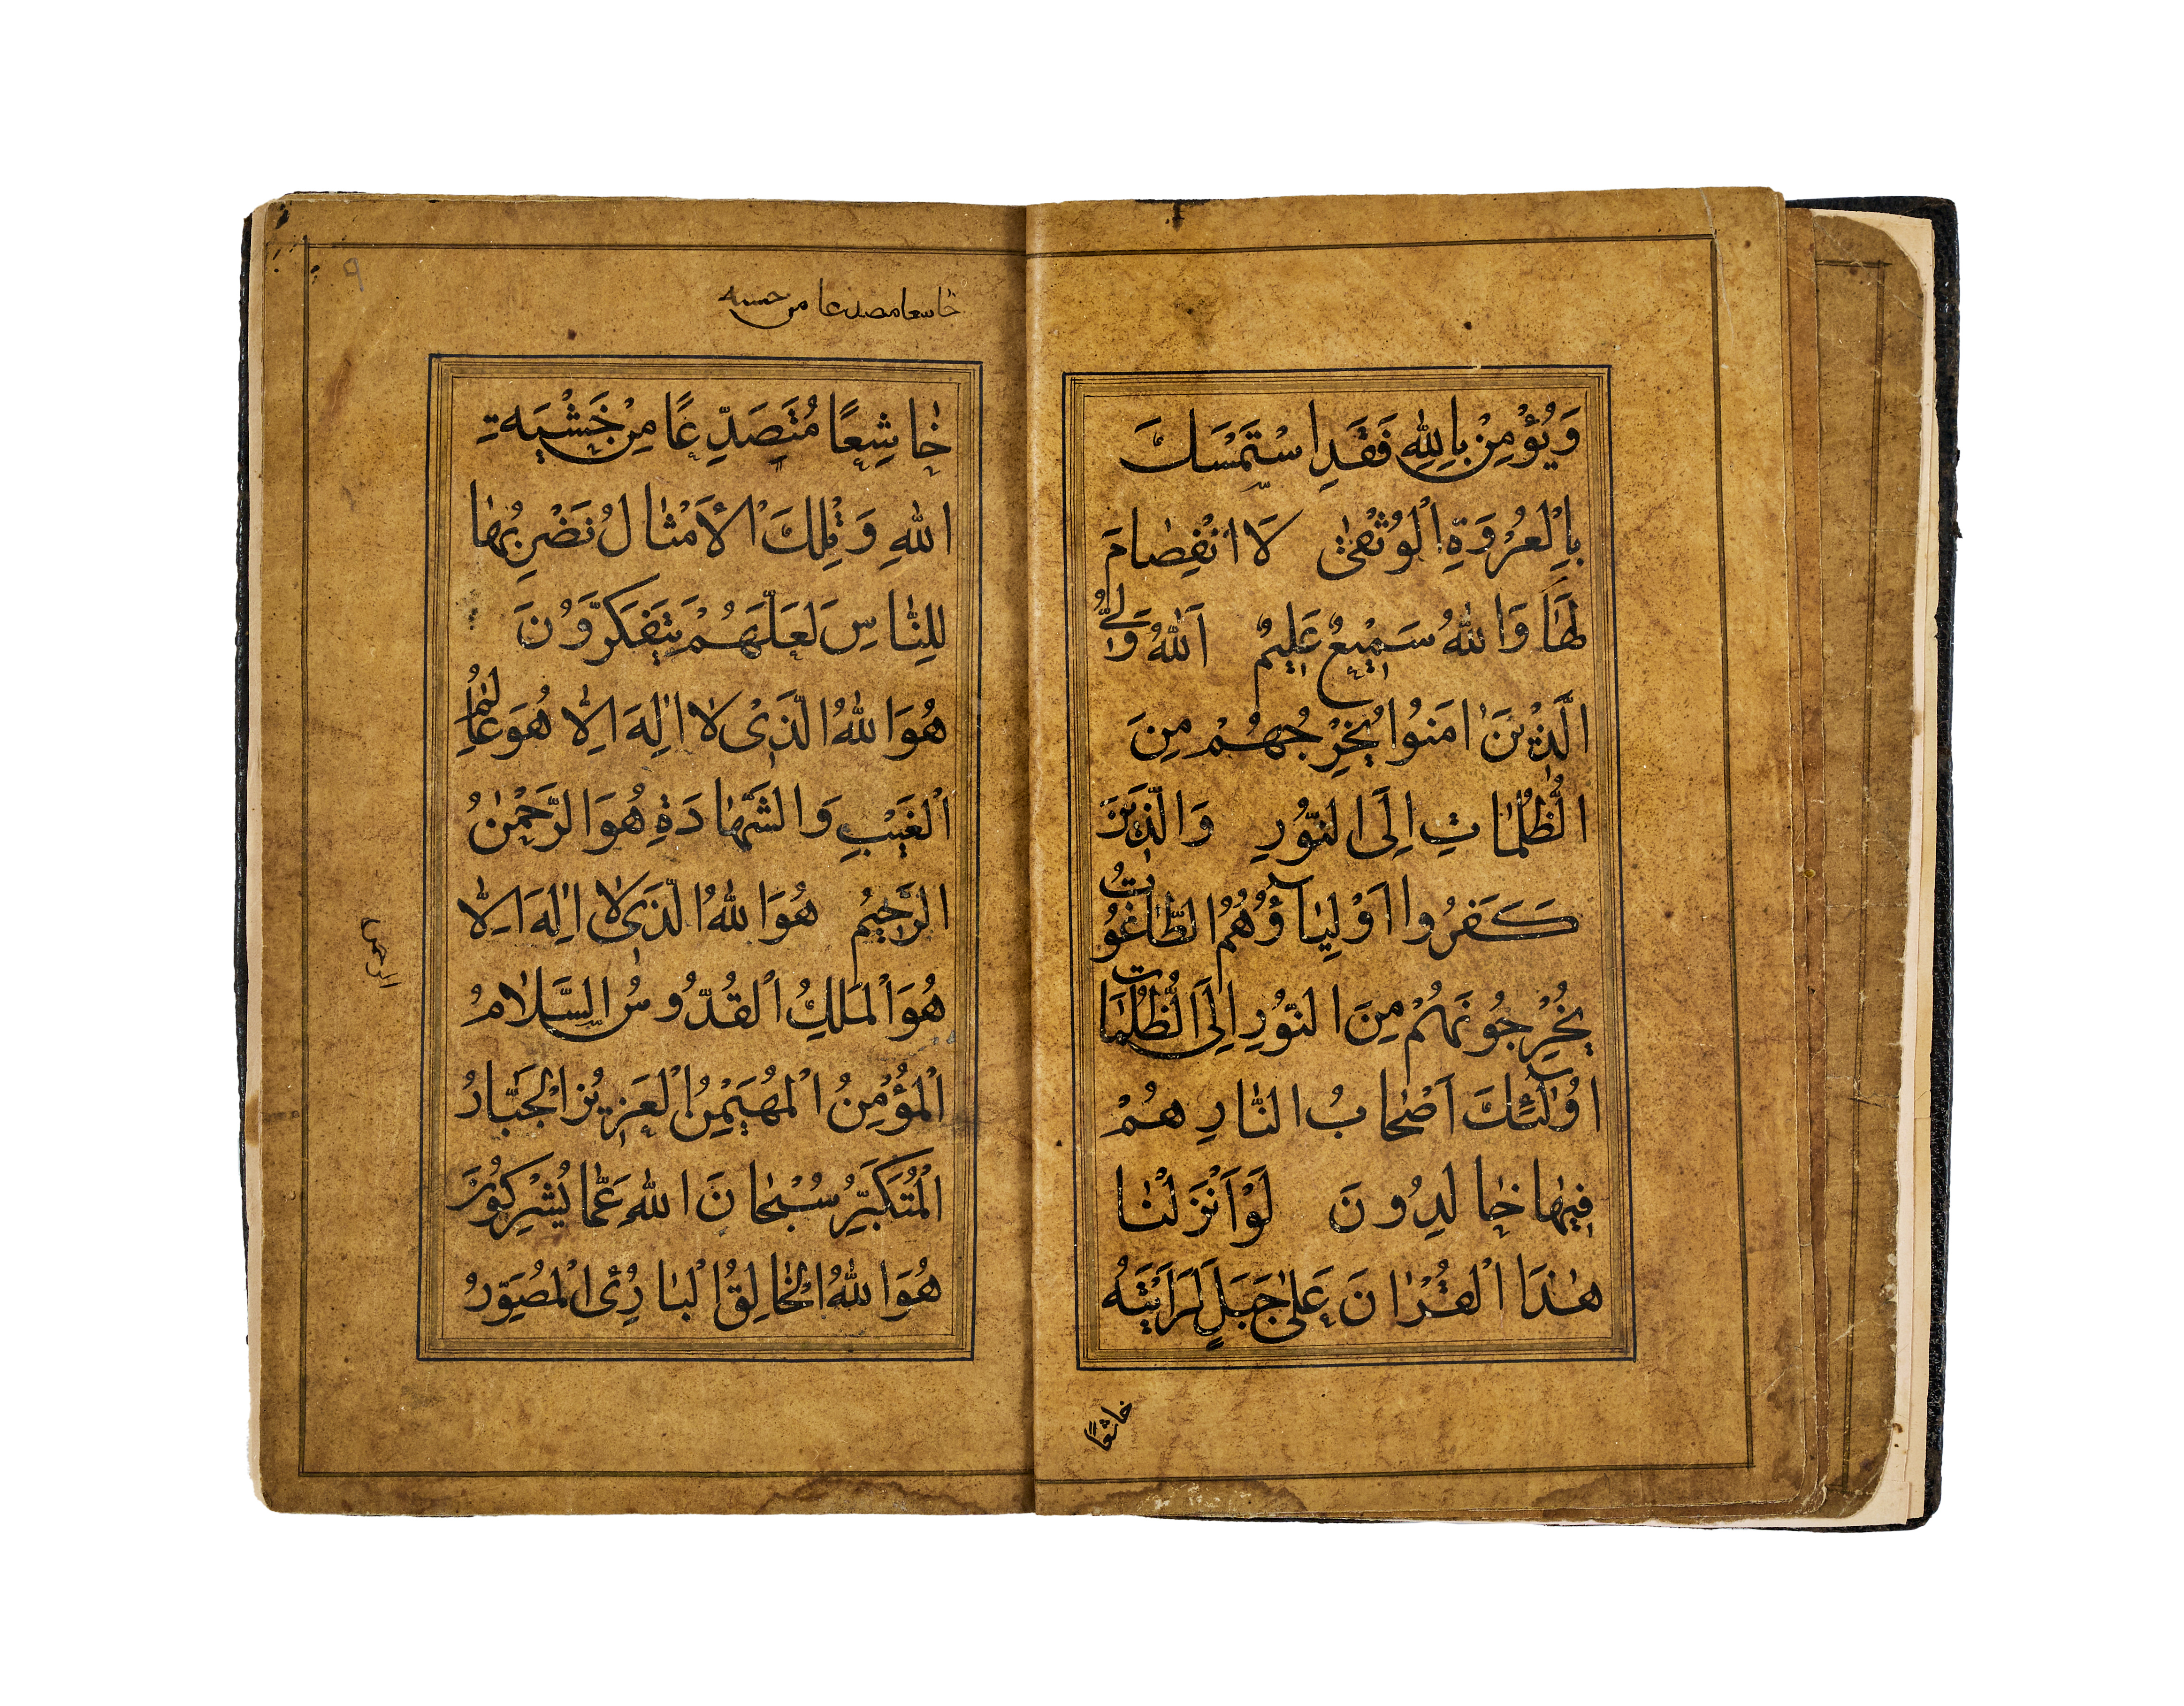 وَيُؤْمِنْ بِاللّٰهِ فَقَدِ اسْتَمْسَكَ
بِالْعُرْوَةِ الْوُثْقٰى لَا انْفِصٰامَ
لَهٰا وَاللّٰهُ سَمِيْعٌ عَلِيمٌ اَللّٰهُ وَلِىُّ
الَّذِيْنَ اٰمَنُوا يُخْرِجُهُمْ مِنَ
الظُّلُمٰاتِ اِلَى النُّوْرِ وَالَّذِيْنَ
كَفَرُوا اَوْلِيٰآؤُهُمُ الطّٰاغُوتُ
يُخْرِجُونَهُمْ مِنَ النُّوْرِ اِلَى الظُّلُمٰاتِ
اُولٰٓئِكَ اَصْحٰابُ النّٰارِ هُمْ
فِيهٰا خٰالِدُونَ لَوْ اَنْزَلْنٰا
هٰذَا الْقُرْاٰنَ عَلٰى جَبَلٍ لَرَاَيْتَهُ
خاشعًا
خاسعا مصدعا من حسىه
خٰاشِعًا مُتَصَدِّعًا مِنْ خَشْيَةِ
اللّٰهِ وَتِلْكَ الْاَمْثٰالُ نَضْرِبُهٰا
لِلنّٰاسِ لَعَلَّهُمْ يَتَفَكَّرُوْنَ
هُوَ اللّٰهُ الَّذِىْ لٰا اِلٰهَ اِلّٰا هُوَ عٰالِمُ
الْغَيْبِ وَالشَّهٰادَةِ هُوَ الرَّحْمٰنُ
الرَّحِيمُ هُوَ اللّٰهُ الَّذِى لٰا اِلٰهَ اِلّٰا
هُوَ الْمَلِكُ الْقُدُّوسُ السَّلٰامُ
الْمُؤْمِنُ الْمُهَيْمِنُ الْعَزِيْزُ الْجَبّٰارُ
الْمُتَكَبِّرُ سُبْحٰانَ اللّٰهِ عَمّٰا يُشْرِكُوْنَ
هُوَ اللّٰهُ الْخٰالِقُ الْبٰارِئُ الْمُصَوِّرُ